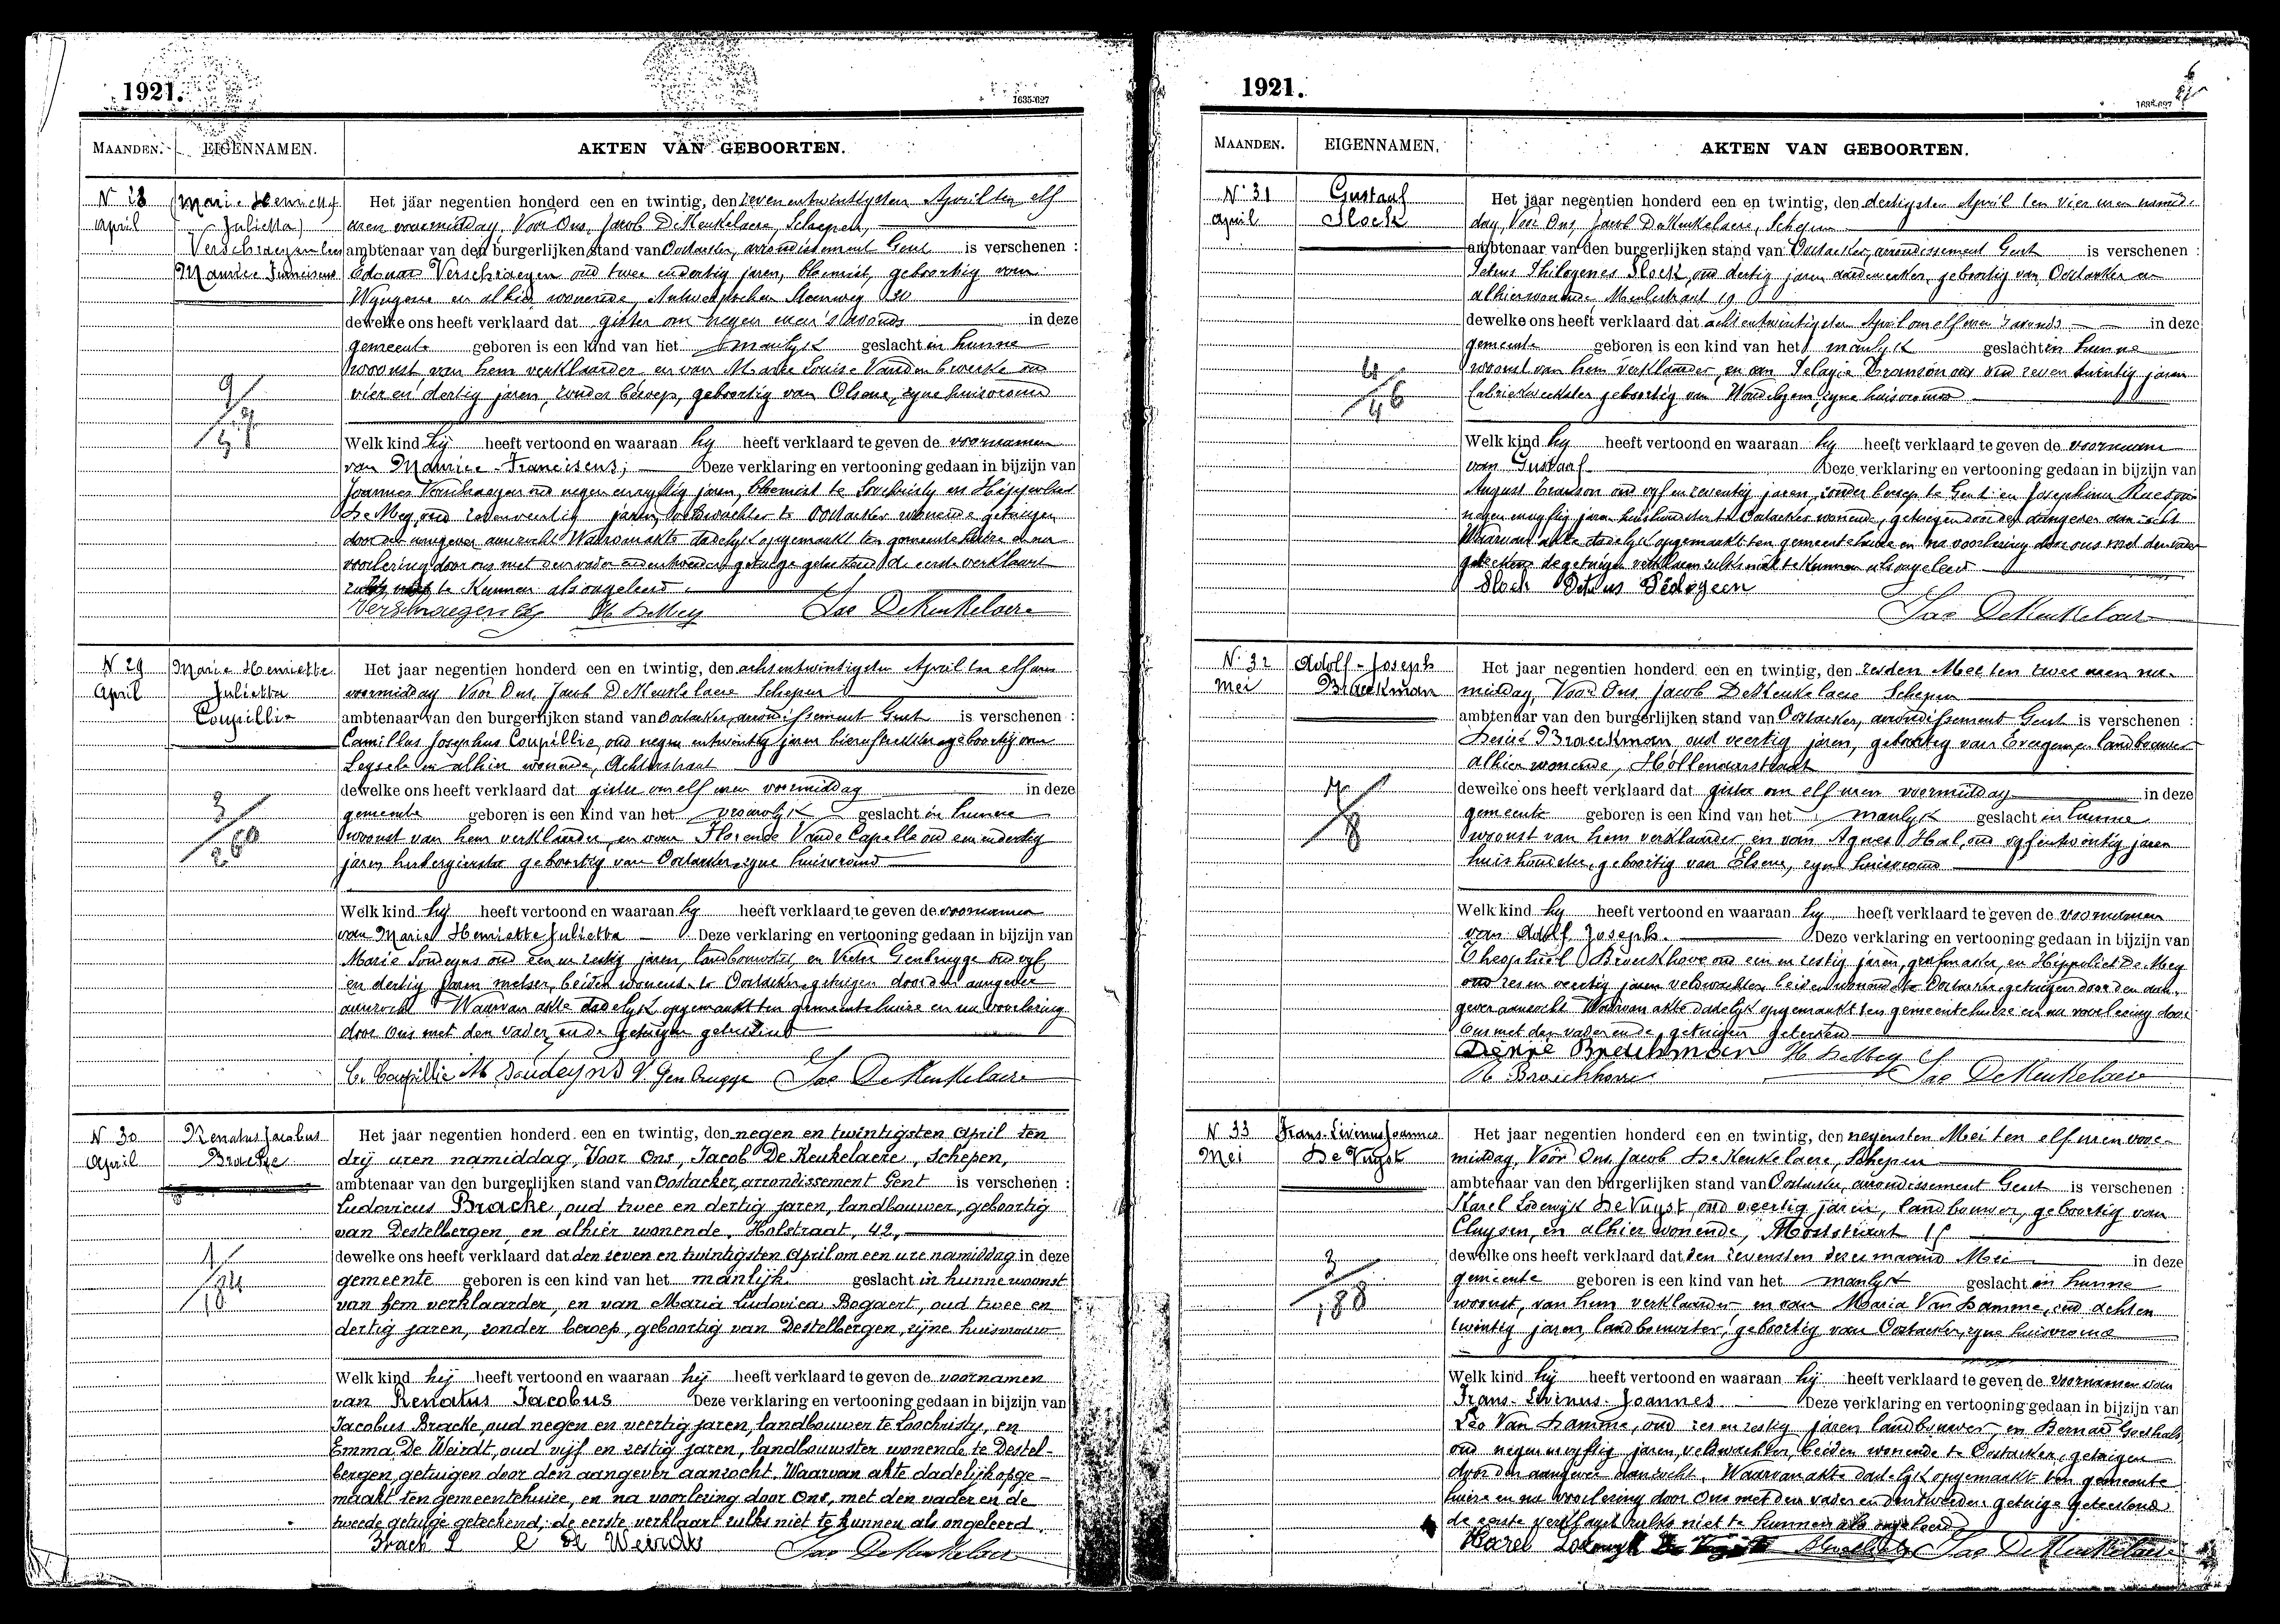 1921.
1635-627
MAANDEN.
EIGENNAMEN.
AKTEN VAN GEBOORTEN.
N 28
April
(Marie Henriette
Julietta)
Verschraegen
Maurice Franciscus
9/
Het jaar negentien honderd een en twintig, den zevenentwintigsten April ten elf
uren voormiddag, Voor Ons, Jacob DeKeukelaere, Schepen,
ambtenaar van den burgerlijken stand van Oostacker, arrondissement Gent is verschenen :
Edouar Verschraegen oud twee endertig jaren, bloemist, geboortig van
Wyngene en alhier wonende, Antwerpschen Steenweg 30
dewelke ons heeft verklaard dat gister om negen uren 's avonds in deze
gemeente geboren is een kind van het manlyk geslacht in hunne
woonst van hem verklaarder en van Marie Louise oud
vier en dertig jaren, zonder beroep, geboortig van Olsene, zyne huisvrouw
Welk kind hy heeft vertoond en waaraan hy heeft verklaard te geven de voornamen
van Maurice-Franciscus; Deze verklaring en vertooning gedaan in bijzijn van
Joannes Verschraegen oud negen envyftig jaren, bloemist te Loochristy en Hippoliet
DeMey, oud jaren, veldwachter te Oostacker wonende getuigen
door den aangever aanzocht Waarvan akte dadelyk opgemaakt ten gemeentehuize en na
voorlezing door ons met den vader en den tweeden getuige geteekend de eerste verklaart
zulks niet te kunnen als ongeleerd.
Verschraegen Ed H DeMey Jac DeKeukelaere
N 29
April
Marie Henriette
Julietta
Coupillie
3/260
Het jaar negentien honderd een en twintig, den achtentwintigsten April ten elf uren
voormiddag Voor Ons, Jacob DeKeukelaere Schepen
ambtenaar van den burgerlijken stand van Oostacker, arrondissement Gent is verschenen :
Camillus Josephus Coupillie, oud negen entwintig jaren geboortig van
Leysele en alhier wonende, Achterstraat
dewelke ons heeft verklaard dat gister om elf uren voormiddag in deze
gemeente geboren is een kind van het vrouwlyk geslacht in hunne
woonst van hem verklaarder, en van Florence Vande Capelle oud een endertig
jaren, herbergierster geboortig van Oostacker, zyne huisvrouw
Welk kind hy heeft vertoond en waaraan hy heeft verklaard te geven de voornamen
van Marie Henriette Julietta Deze verklaring en vertooning gedaan in bijzijn van
Marie Soudeyns oud een en zestig jaren, landbouwster, en Victor Genbrugge oud vyf
en dertig jaren metser, beiden wonende te Oostacker getuigen door den aangever
aanzocht Waarvan akte dadelyk opgemaakt ten gemeentehuize en na voorlezing
door Ons met den vader en de getuigen geteekend
C. Coupillie M Soudeyns V. Genbrugge Jac DeKeukelaere
N 30
April
Renatus Jacobus
Bracke
1/
Het jaar negentien honderd een en twintig, den negen en twintigsten April ten
drij uren namiddag, Voor Ons, Jacob De Keukelaere, Schepen,
ambtenaar van den burgerlijken stand van Oostacker, arrondissement Gent is verschenen :
Ludovicus Bracke, oud twee en dertig jaren, landbouwer, geboortig
van Destelbergen, en alhier wonende, Holstraat, 42,
dewelke ons heeft verklaard dat den zeven en twintigsten April om een ure namiddag in deze
gemeente geboren is een kind van het manlijk geslacht in hunne woonst
van hem verklaarder, en van Maria Ludovica Bogaert, oud twee en
dertig jaren, zonder beroep, geboortig van Destelbergen, zijne huisvrouw
Welk kind hij heeft vertoond en waaraan hij heeft verklaard te geven de voornamen
van Renatus Jacobus Deze verklaring en vertooning gedaan in bijzijn van
Jacobus Bracke, oud negen en veertig jaren, landbouwer te Loochristy, en
Emma De Weirdt, oud vijf en zestig jaren, landbouwster wonende te Destel-
bergen, getuigen door den aangever aanzocht. Waarvan akte dadelijk opge-
maakt ten gemeentehuize, en na voorlezing door Ons, met den vader en de
tweede getuige geteekend, de eerste verklaart zulks niet te kunnen als ongeleerd.
Brack L E De Weirdt Jac DeKeukelaere
1921.
1635-627
MAANDEN.
EIGENNAMEN.
AKTEN VAN GEBOORTEN.
N° 31
April
Gustaaf
Slock
4/46
Het jaar negentien honderd een en twintig, den dertigsten April ten vier uren namid-
dag, Voor Ons, Jacob DeKeukelaere, Schepen
ambtenaar van den burgerlijken stand van Oostacker, arrondissement Gent is verschenen :
Petrus Philogenes Slock, oud dertig jaren aardewerker, geboortig van Oostacker en
alhier wonende Meulestraat 19
dewelke ons heeft verklaard dat achtentwintigsten April om elf uren 's avonds in deze
gemeente geboren is een kind van het manlyk geslacht in hunne
woonst van hem verklaarder, en van Pelagie Transon oud zeven twintig jaren
fabriekwerkster geboortig van Wondelgem, zyne huisvrouw
Welk kind hy heeft vertoond en waaraan hy heeft verklaard te geven de voornaam
van Gustaaf Deze verklaring en vertooning gedaan in bijzijn van
August Transon oud vyf en zeventig jaren, zonder beroep te Gent en Josephina
negen envyftig jaren huishoudster te Oostacker wonende, getuigen door den aangever aanzocht
Waarvan akte dadelyk opgemaakt ten gemeentehuize en na voorlezing door ons met den vader
geteekend de getuigen verklaren zulks niet te kunnen als ongeleerd
Slock Petrus Pilogeen
Jac DeKeukelaere
N° 32
Mei
Adolf-Joseph
Braeckman
4/8
Het jaar negentien honderd een en twintig, den zesden Mei ten twee uren na-
middag, Voor Ons, Jacob DeKeukelaere Schepen
ambtenaar van den burgerlijken stand van Oostacker, arrondissement Gent is verschenen :
Desiré Braeckman, oud veertig jaren, geboortig van Evergem, landbouwer
alhier wonende, Hollenaarstraat
dewelke ons heeft verklaard dat gister om elf uren voormiddag in deze
gemeente geboren is een kind van het manlyk geslacht in hunne
woonst van hem verklaarder en van Agnes oud vyfentwintig jaren
huishoudster, geboortig van Elsene, zyne huisvrouw
Welk kind hy heeft vertoond en waaraan hy heeft verklaard te geven de voornamen
van Adolf Joseph. Deze verklaring en vertooning gedaan in bijzijn van
Theophiel Broeckhove oud een en zestig jaren, grafmaker, en Hippoliet De Mey
oud zes en veertig jaren veldwachter beiden wonende te Oostacker getuigen door den aan-
gever aanzocht Waarvan akte dadelyk opgemaakt ten gemeentehuize en na voorlezing door
Ons met den vader en de getuigen geteekend
Desiré Braeckman H DeMey
Th Broeckhove Jac DeKeukelaere
N 33
Mei
Frans-Livinus Joannes
De Vuyst
3/188
Het jaar negentien honderd een en twintig, den negensten Mei ten elf uren voor-
middag, Voor Ons, Jacob De Keukelaere, Schepen
ambtenaar van den burgerlijken stand van Oostacker, arrondissement Gent is verschenen :
Karel Lodewijk De Vuyst, oud veertig jaren, landbouwer, geboortig van
Cluysen, en alhier wonende,
dewelke ons heeft verklaard dat den zevensten dezer maand Mei in deze
gemeente geboren is een kind van het manlyk geslacht in hunne
woonst, van hem verklaarder en van Maria Van Damme, oud achten
twintig jaren, landbouwster, geboortig van Oostacker, zyne huisvrouw
Welk kind hij heeft vertoond en waaraan hij heeft verklaard te geven de voornamen van
Frans-Livinus-Joannes Deze verklaring en vertooning gedaan in bijzijn van
Leo Van Damme, oud zes en zestig jaren landbouwer, en Bernard Goethals
oud negen envyftig jaren, veldwachter, beiden wonende te Oostacker, getuigen
door den aangever aanzocht. Waarvan akte dadelyk opgemaakt ten gemeente
huize en na voorlezing door Ons met den vader en den tweeden getuige geteekend
de eerste verklaart zulks niet te kunnen als ongeleerd
Karel Lodewyk De Vuyst Jac DeKeukelaere